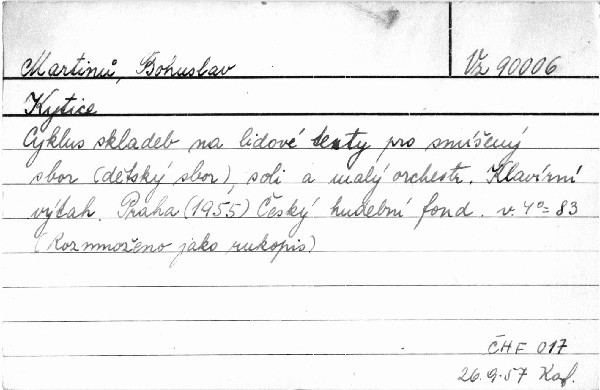 Martinů, Bohuslav Vz 90006
Kytice
Cyklus skladeb na lidové texty pro smíšený
sbor (dětský sbor), soli a malý orchestr. Klavírní
výtah. Praha (1955) Český hudební fond. v. 4° = 83
(Rozmnoženo jako rukopis)
ČHF 017
26.9.57 Kaf.